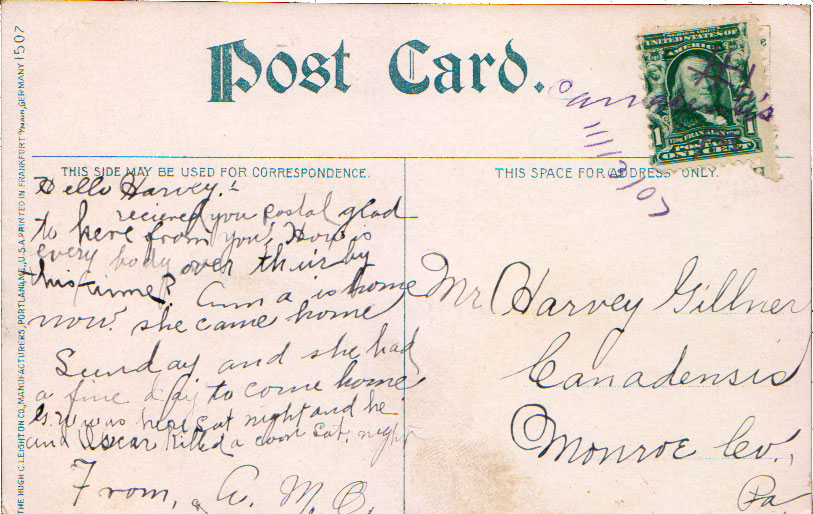 Post Card.
THIS SIDE MAY BE USED FOR CORRESPONDENCE.
THIS SPACE FOR ADDRESS ONLY.
UNITED STATES OF
AMERICA
1 FRANKLIN 1
POSTAGE
ONE CENT
11/12/07
THE HUGH C. LEIGHTON CO., MANUFACTURERS, PORTLAND, ME., U.S.A. PRINTED IN FRANKFORT ᵒ/MAIN, GERMANY 1507
Hello Harvey.!
recieved you postal glad
to here from you! How is
every body over their by
this time? Anna is home
now. she came home
Sunday and she had
a fine day to come home
was here Sat night and he
and Oscar killed a coon Sat. night
From, a A. M. C.
Mr Harvey Gillner
Canadensis
Monroe Co.,
Pa